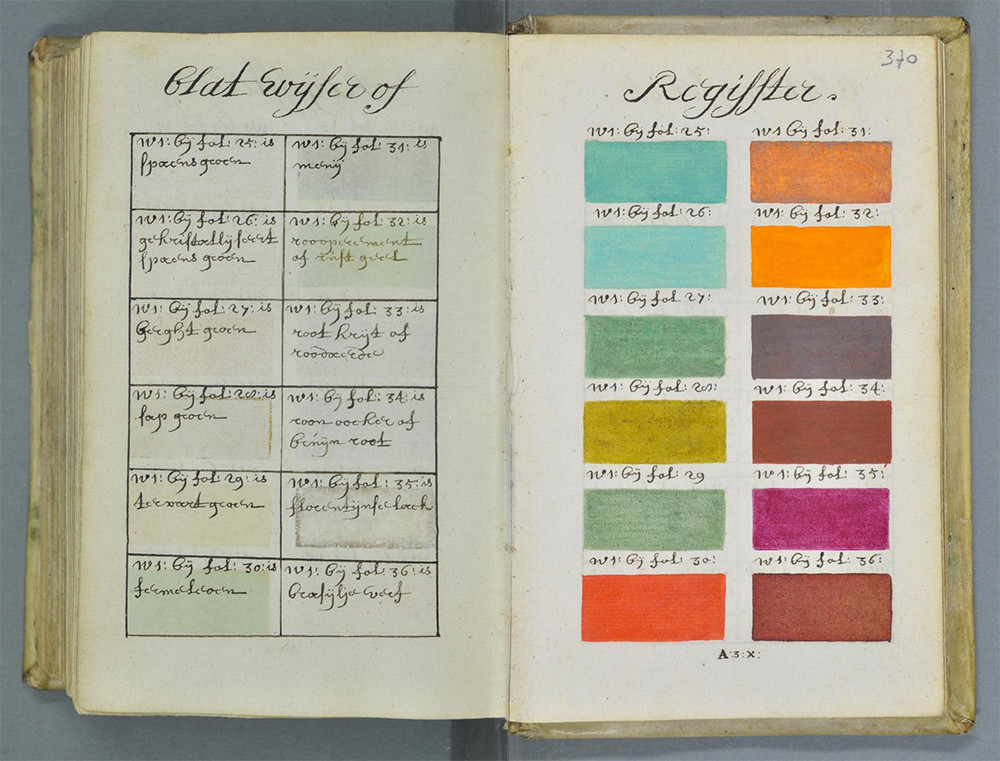 Blat Wÿser of
w1: bÿ fol: 25: is
spaens groen
w1: bÿ fol: 31: is
menij
w1: bÿ fol: 26: is
gekristallyseert
spaens groen
w1: bÿ fol: 32: is
roooperement
of rust geel
w1: bÿ fol: 27: is
berght groen
w1: bÿ fol: 33: is
root krijt of
roodaerde
w1: bÿ fol: 28: is
sap groen
w1: bÿ fol: 34: is
roon oocker of
bruijn root
w1: bÿ fol: 29: is
groen
w1: bÿ fol: 35: is
florentijnse lack
w1: bÿ fol: 30: is
w1: bÿ fol: 36: is
brasijlje verf
370
Regisster.
w1: bÿ fol: 25:
w1 bÿ fol: 31:
w1: bÿ fol: 26:
w1: bÿ fol: 32:
w1: bÿ fol: 27:
w1: bÿ fol: 33:
w1: bÿ fol: 28:
w1: bÿ fol: 34:
w1: bÿ fol: 29
w1: bÿ fol: 35:
w1: bÿ fol: 30:
w1: bÿ fol: 36:
A:3:X: